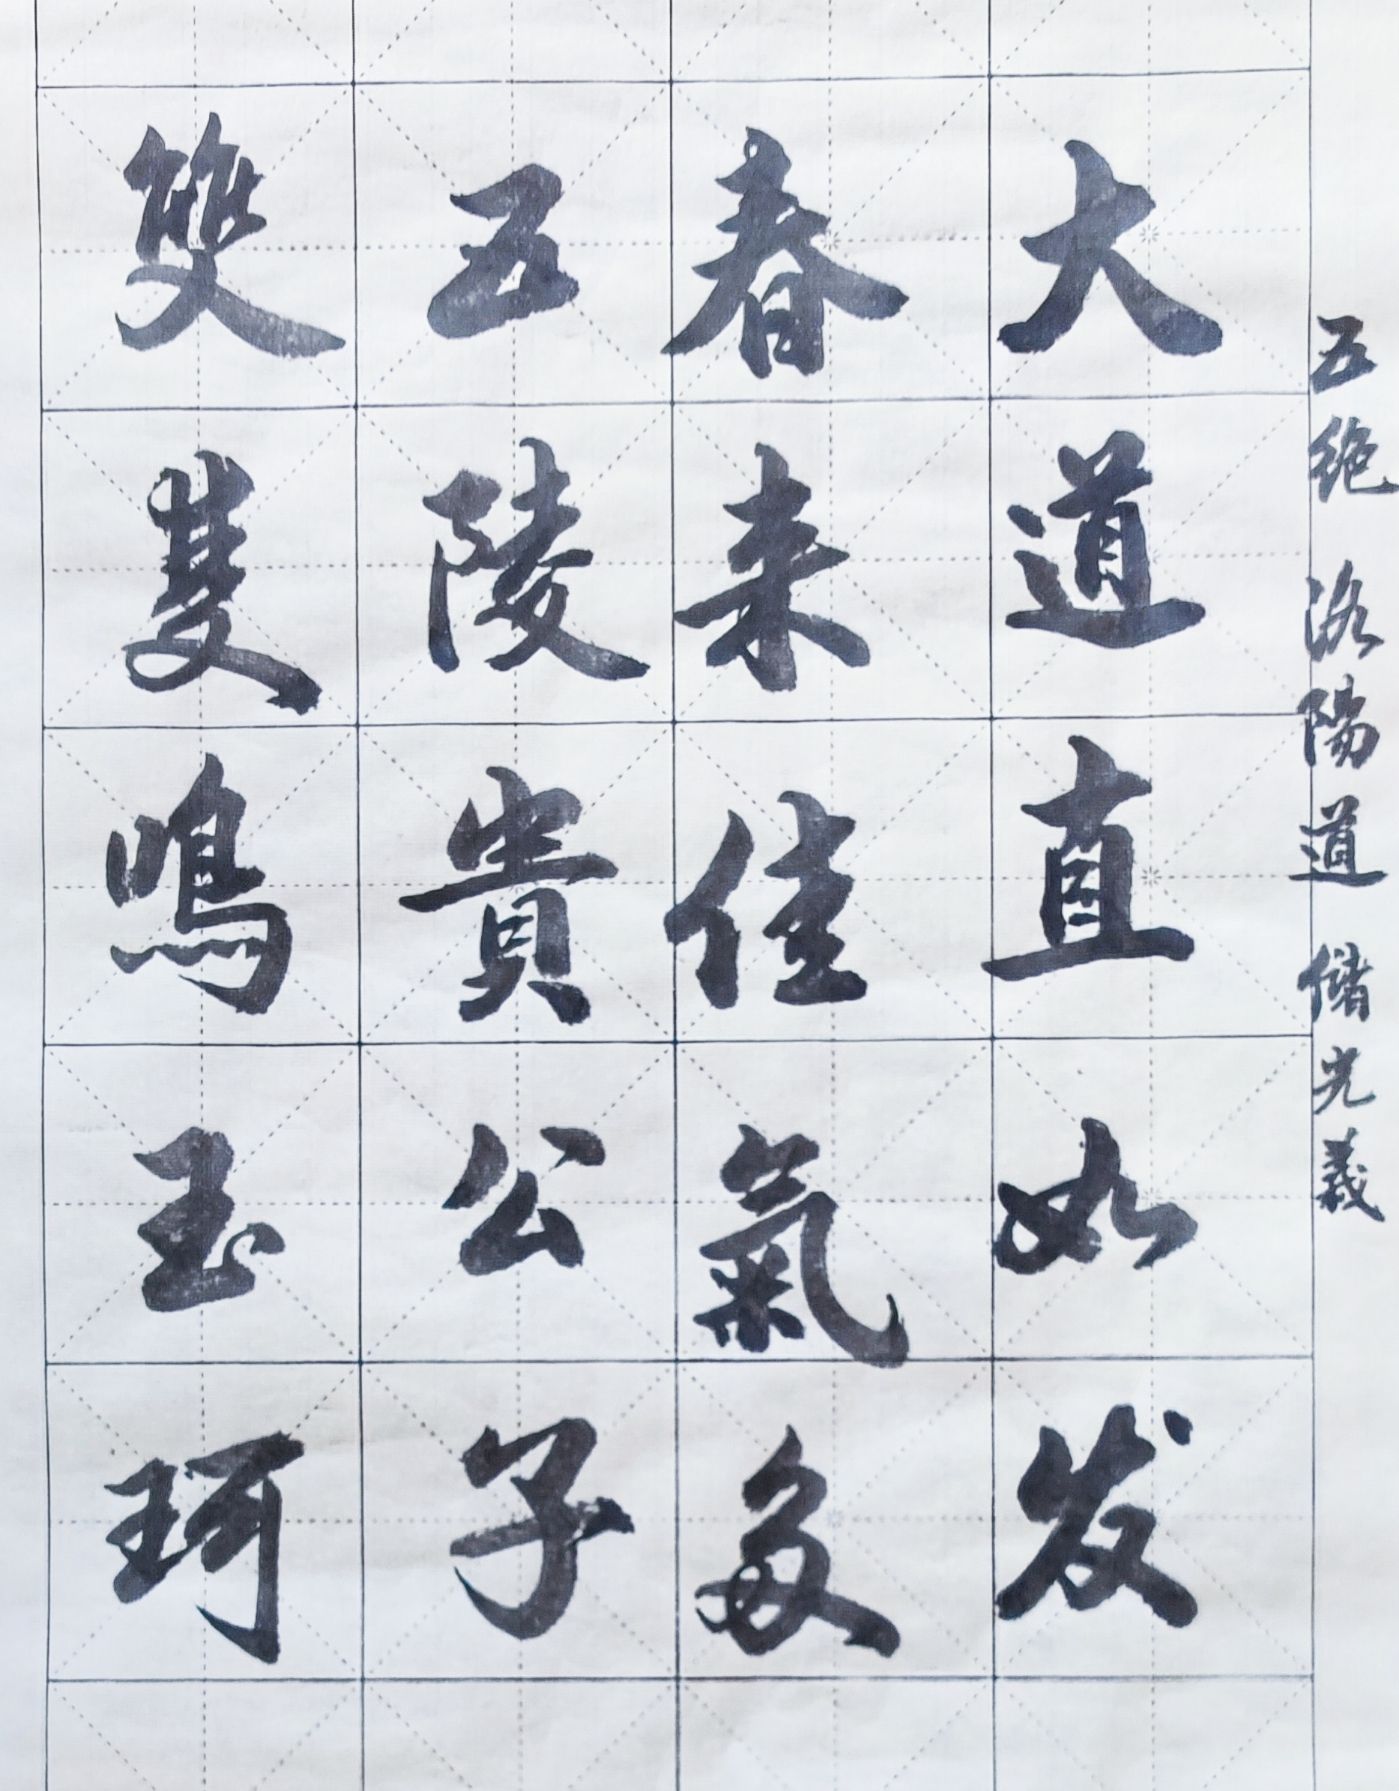 五绝 洛陽道 儲光羲
大道直如发
春来佳氣多
五陵貴公子
雙雙鳴玉珂